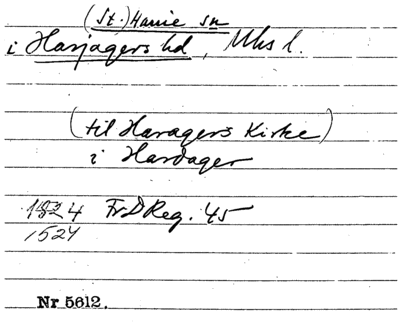 (St.) Hanie sn
i Harjagers hd, Mhs l.
(til Haragers Kirke)
i Hardager
1824 Fr D Reg. 45
1524
Nr 5612.